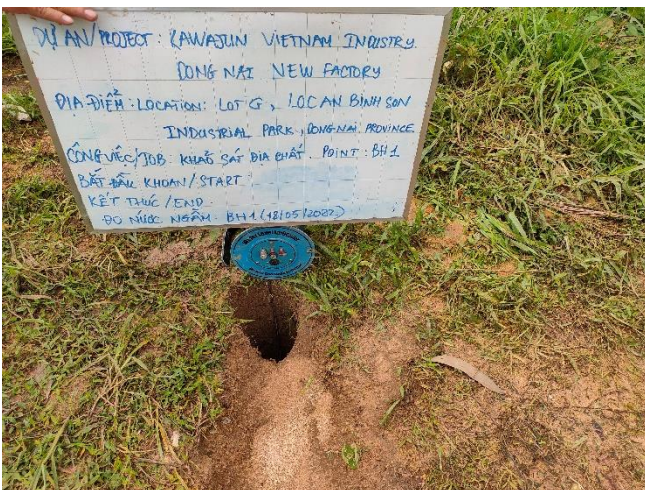 DỰ ÁN/PROJECT: KAWAJUN VIETNAM INDUSTRY.
DONG NAI NEW FACTORY
ĐỊA ĐIỂM: LOCATION: LOT G, LOC AN BINH SON
INDUSTRIAL PARK, DONG NAI PROVINCE
CÔNG VIỆC/JOB: KHẢO SÁT ĐỊA CHẤT. POINT: BH1
BẮT ĐẦU KHOAN/START:
KẾT THÚC/END
ĐO NƯỚC NGẦM: BH1 (18/05/2022)